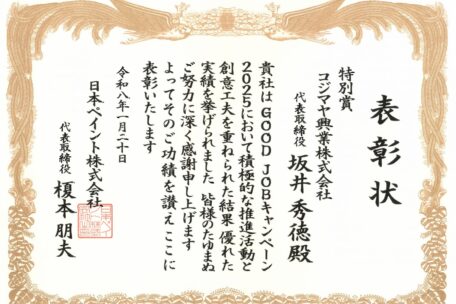 表彰状
特別賞
コジマヤ興業株式会社
代表取締役 坂井 秀徳殿
貴社はGOOD JOBキャンペーン
2025において積極的な推進活動と
創意工夫を重ねられた結果優れた
実績を挙げられました 皆様のたゆまぬ
ご努力に深く感謝申し上げます
よってそのご功績を讃え ここに
表彰いたします
令和八年一月二十日
日本ペイント株式会社
代表取締役 榎本 朋夫